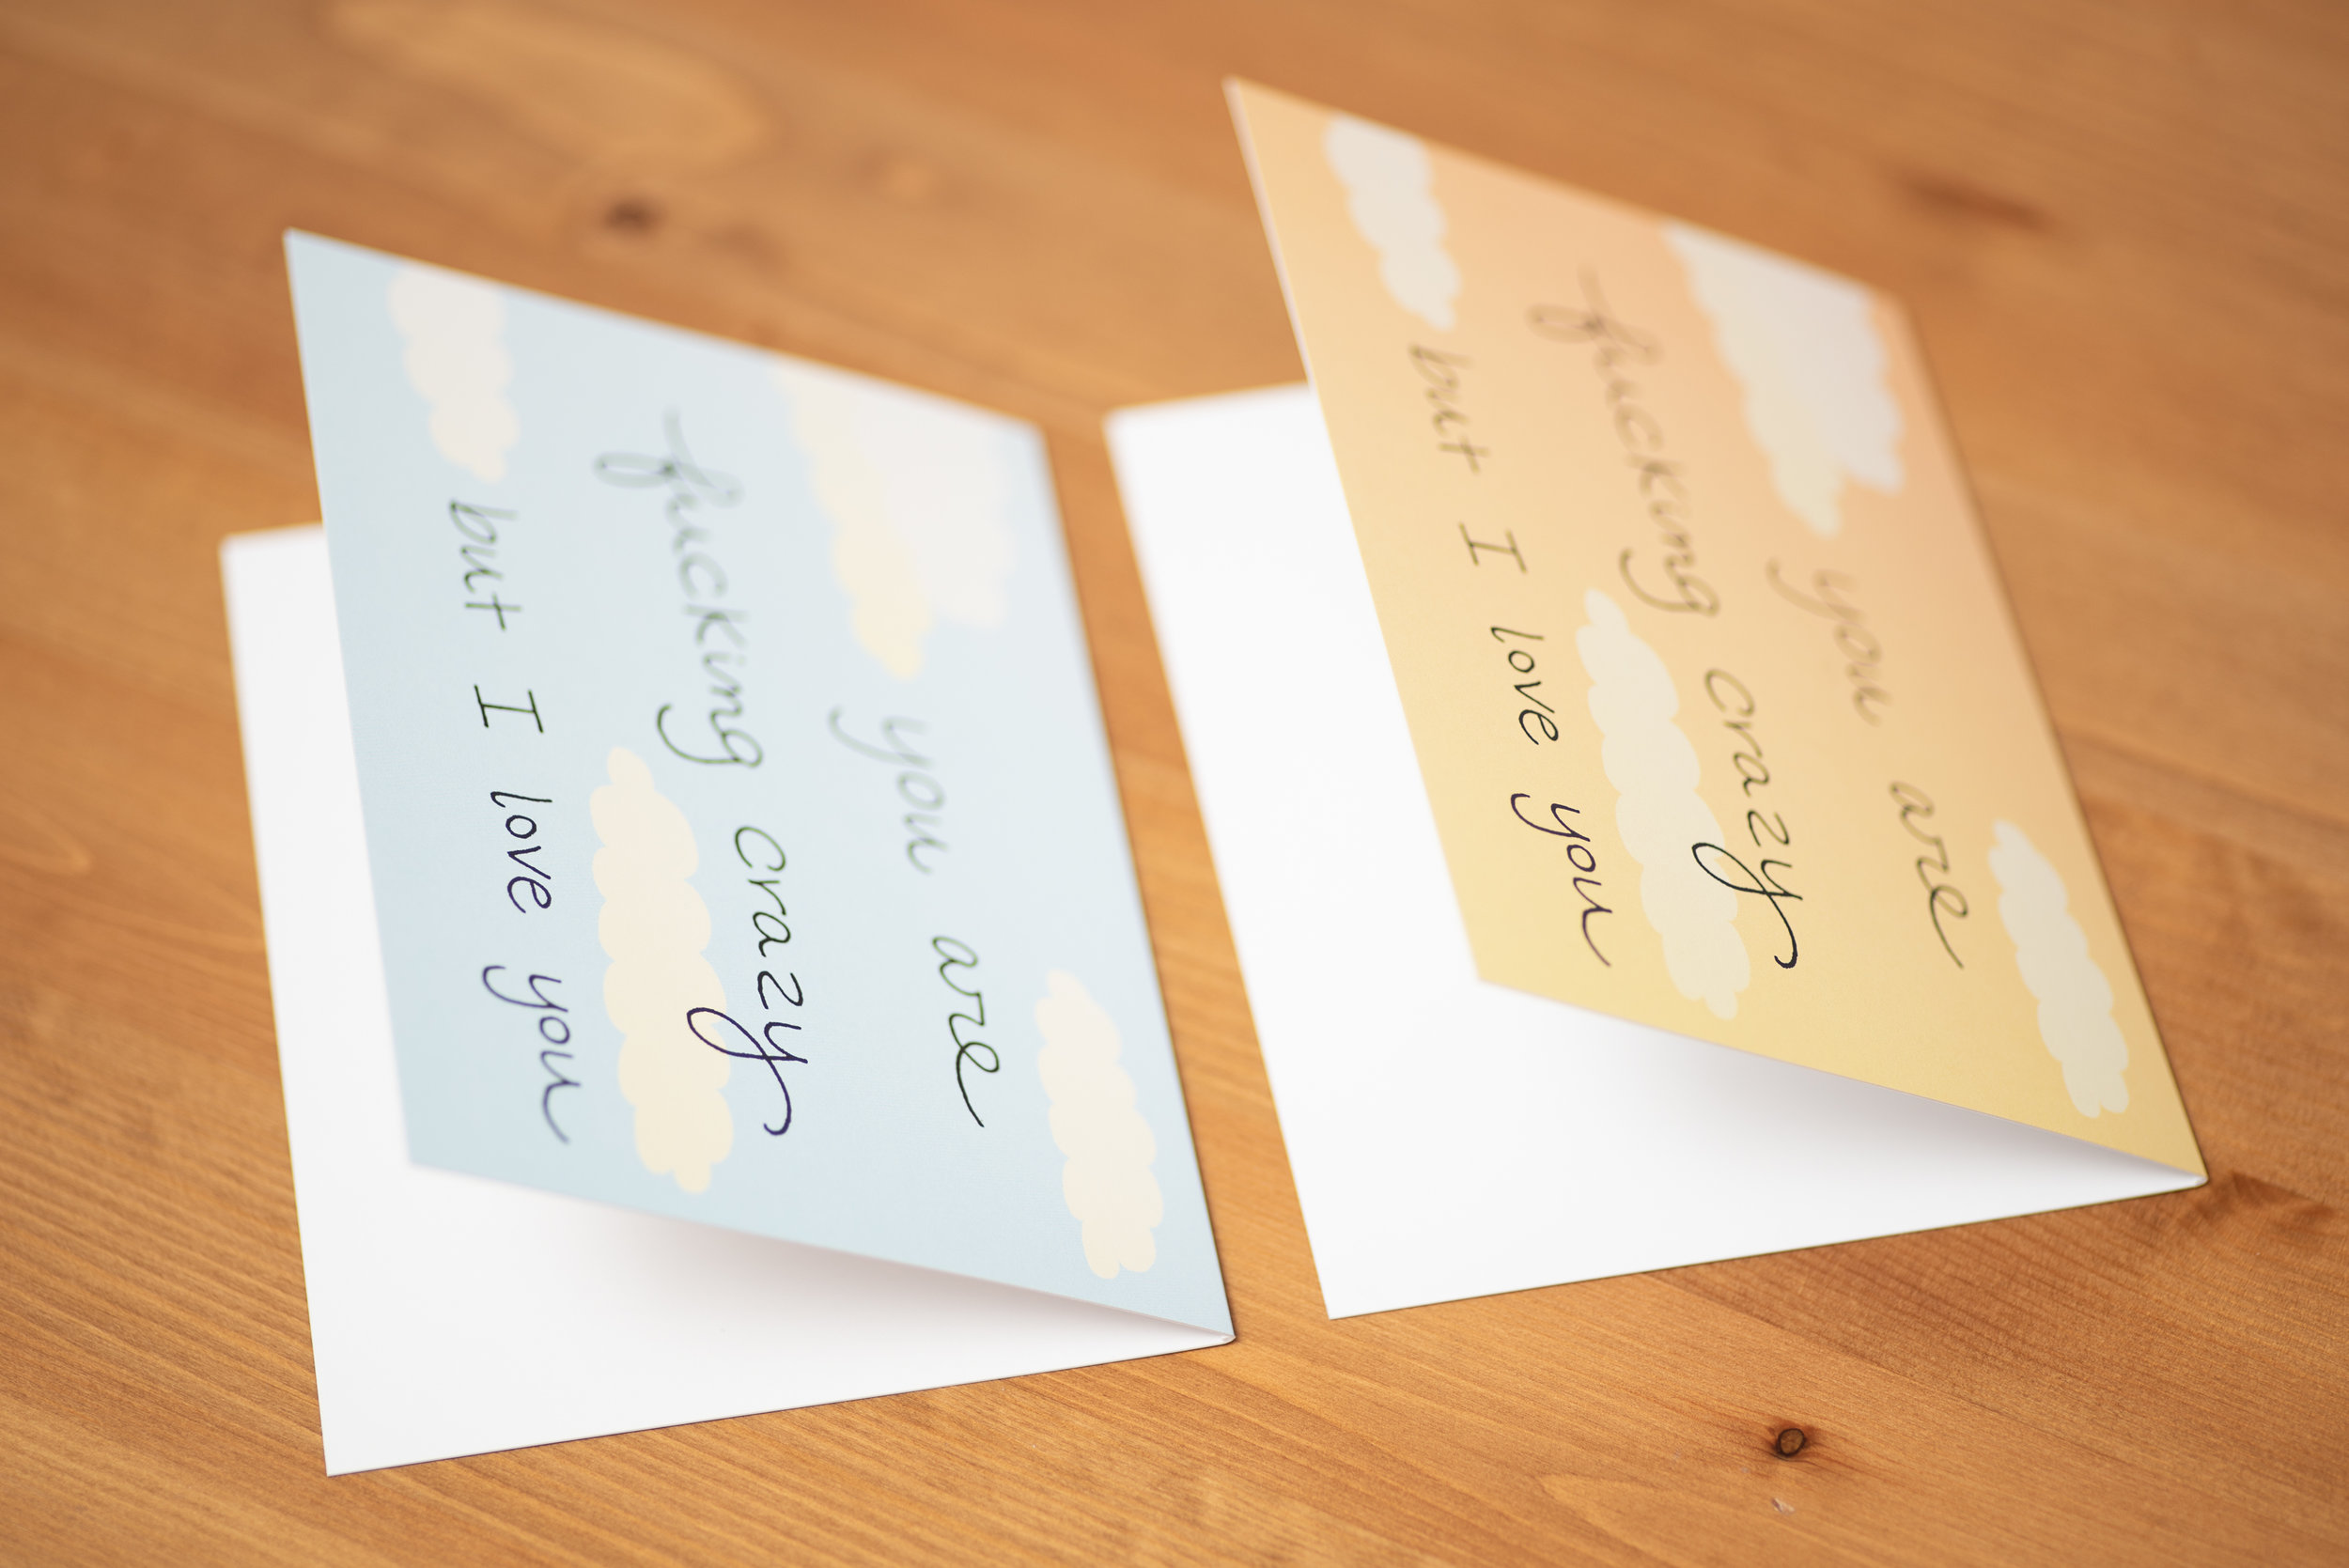 you are
fucking crazy
but I love you
you are
fucking crazy
but I love you